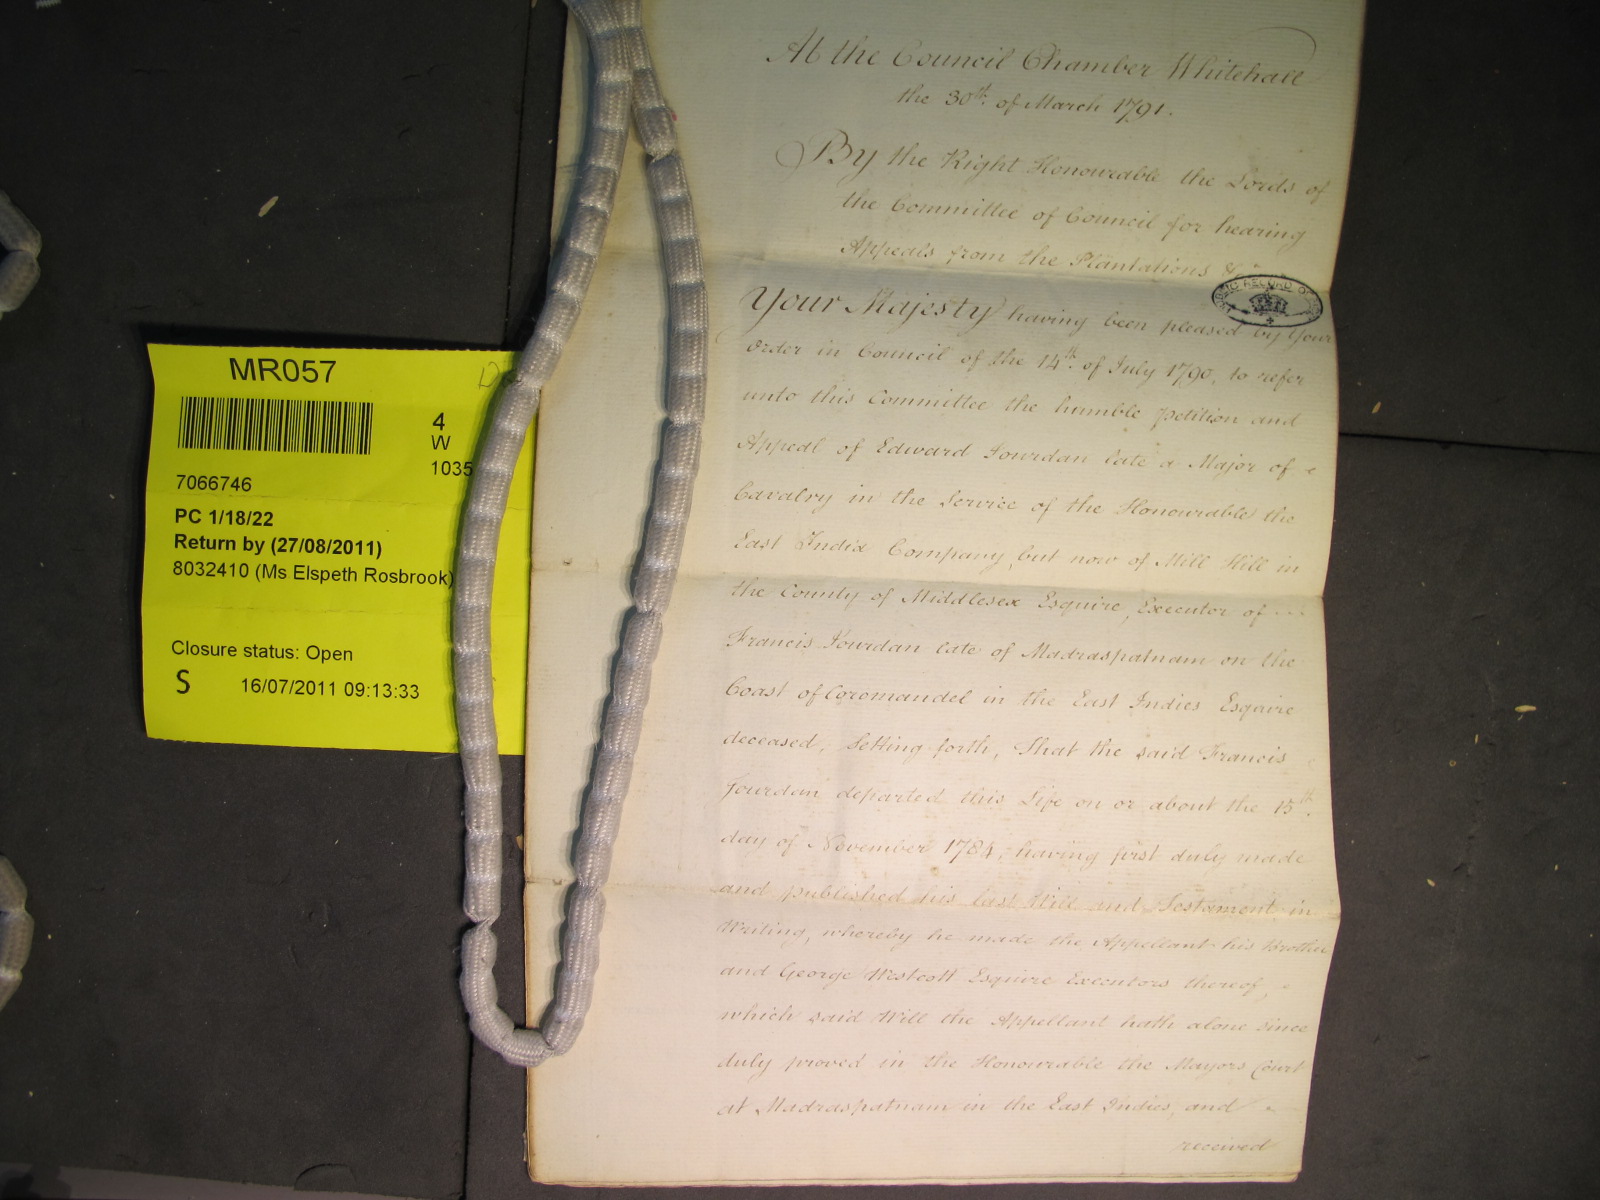 MR057
4
W
1035
7066746
PC 1/18/22
Return by (27/08/2011)
8032410 (Ms Elspeth Rosbrook)
Closure status: Open
S
16/07/2011 09:13:33
At the Council Chamber Whitehall
the 30th. of March 1791.
By the Right Honourable the Lords of
the Committee of Council for hearing
Appeals from the Plantations &c
PUBLIC RECORD OFFICE
Your Majesty having been pleased by Your
Order in Council of the 14th. of July 1790, to refer
unto this Committee the humble Petition and
Appeal of Edward Jourdan late a Major of
Cavalry in the Service of the Honourable the
East India Company, but now of Mill Hill in
the County of Middlesex Esquire, Executor of
Francis Jourdan late of Madraspatnam on the
Coast of Coromandel in the East Indies Esquire
deceased; Setting forth, That the said Francis
Jourdan departed this Life on or about the 15th.
day of November 1784, having first duly made
and published his last Will and Testament in
Writing, whereby he made the Appellant his Brother
and George Westcott Esquire Executors thereof,
which said Will the Appellant hath alone since
duly proved in the Honourable the Mayors Court
at Madraspatnam in the East Indies, and
received